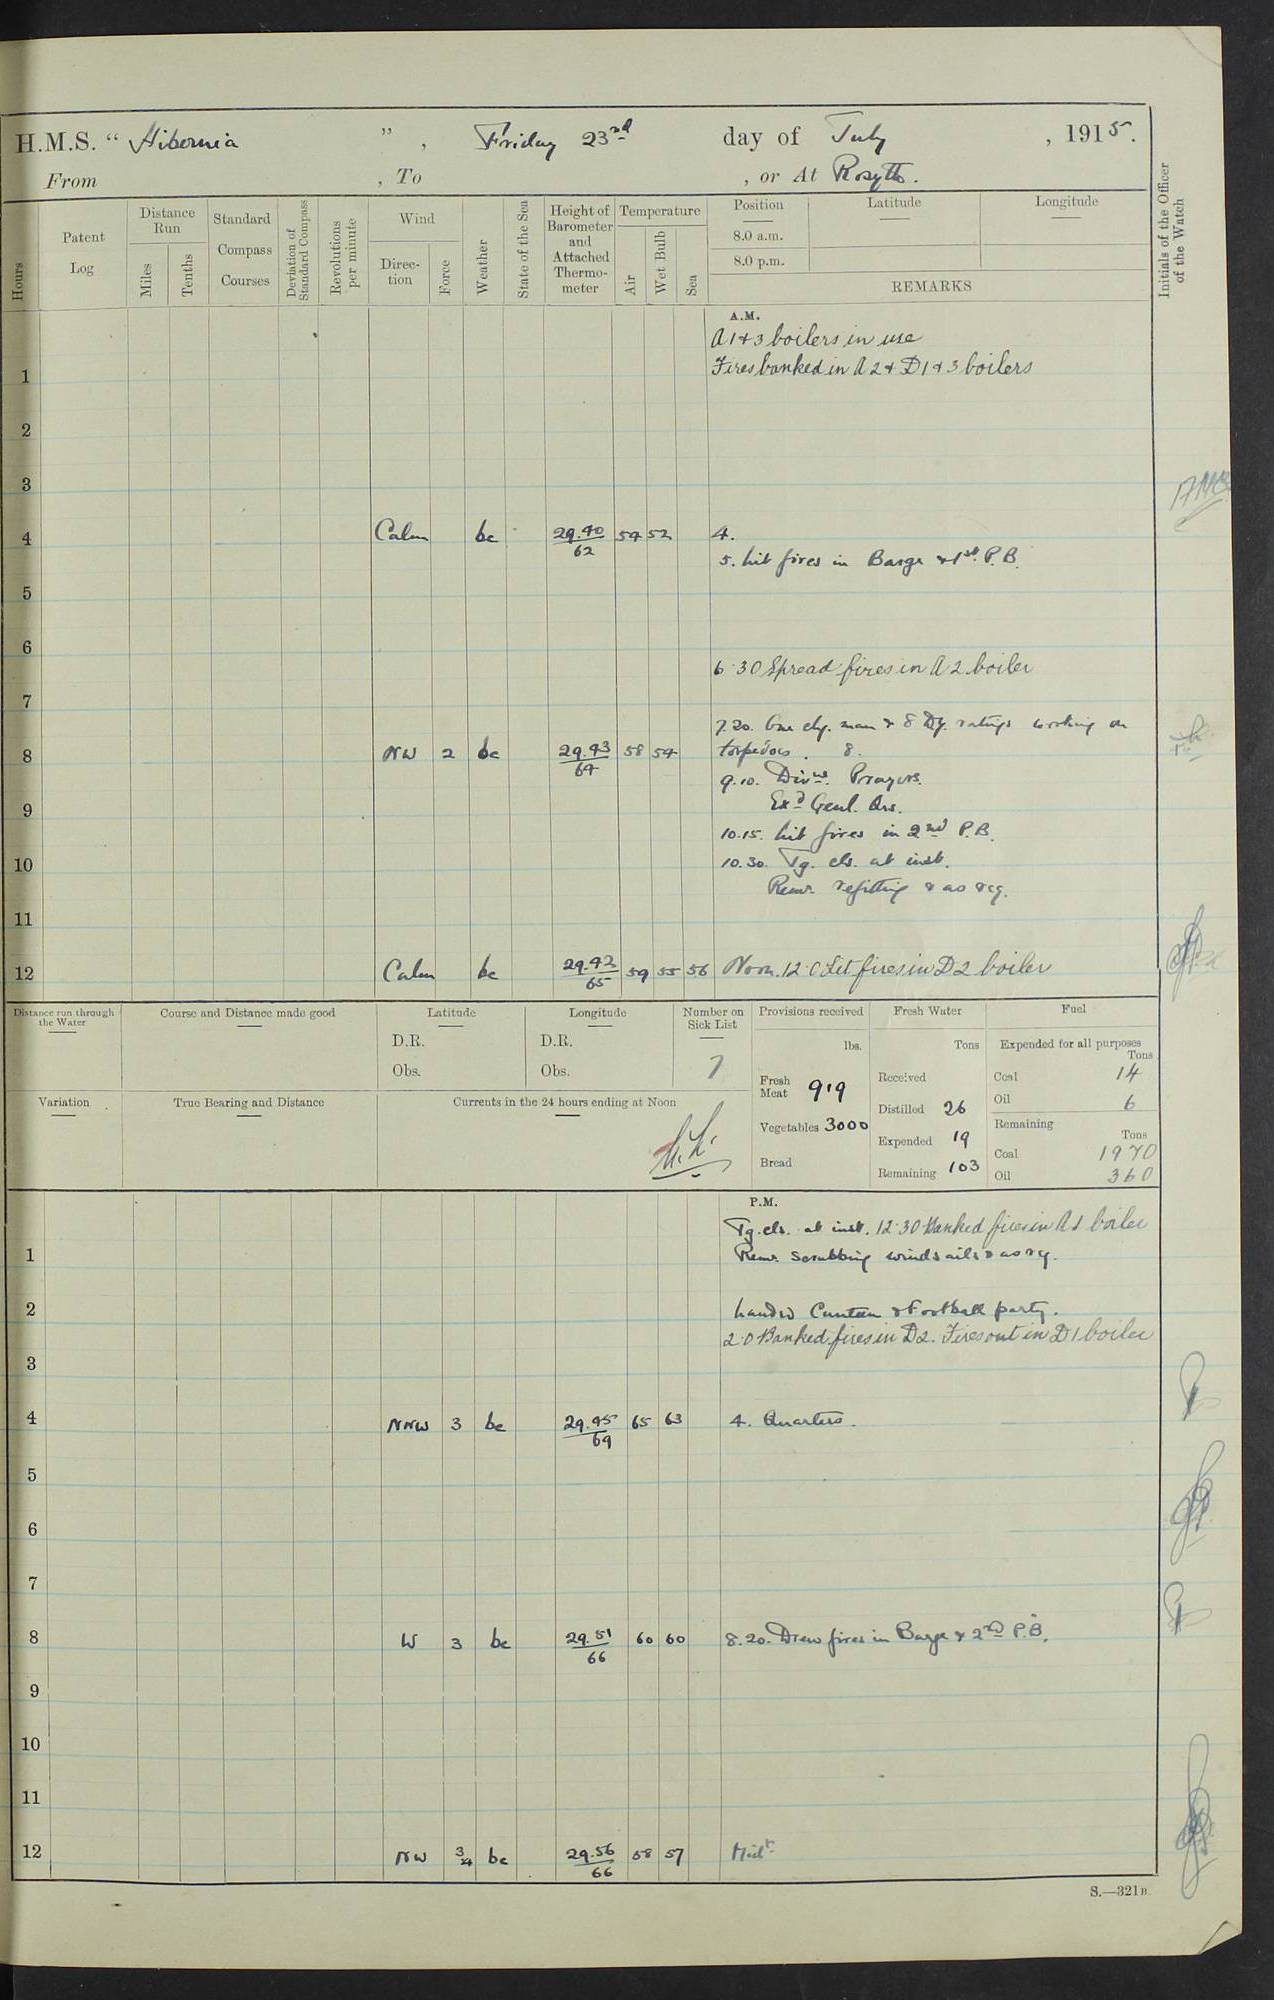 H.M.S. “ Hibernia ”, Friday 23rd day of July, 1915.
From , To , or At Rosyth.
Hours
Patent Log
Distance Run
Miles
Tenths
Standard Compass Courses
Deviation of Standard Compass
Revolutions per minute
Wind
Direction
Force
Weather
State of the Sea
Height of Barometer and Attached Thermometer
Temperature
Air
Wet Bulb
Sea
Position
8.0 a.m.
8.0 p.m.
Latitude
Longitude
REMARKS
Initials of the Officer of the Watch
A.M.
A 1 & 3 boilers in use
1 Fires banked in A 2 & D 1 & 3 boilers
2
3
4 Calm bc 29.40/62 54 52 4.
5. Lit fires in Barge & 1st P.B.
5
6
6.30 Spread fires in A 2 boiler
7
7.20. One chg. man & 8 Dy. ratings working on
8 NW 2 bc 29.43/64 58 54 torpedoes. 8.
9.10. Divns. Prayers.
9 Exd Genl. Qrs.
10.15. Lit fires in 2nd P.B.
10 10.30. Tg. cls. at inst.
Remr. refitting & as req.
11
12 Calm bc 29.42/65 59 55 56 Noon. 12.0 Lit fires in D 2 boiler
Distance run through the Water
Course and Distance made good
Latitude
D.R.
Obs.
Longitude
D.R.
Obs.
Number on Sick List
7
Provisions received
lbs.
Fresh Meat 919
Vegetables 3000
Bread
Fresh Water
Tons
Received
Distilled 26
Expended 19
Remaining 103
Fuel
Expended for all purposes
Tons
Coal 14
Oil 6
Remaining
Tons
Coal 1970
Oil 360
Variation
True Bearing and Distance
Currents in the 24 hours ending at Noon
P.M.
Tg. cls. at inst. 12.30 Banked fires in A 1 boiler
1 Remr. scrubbing windsails & as req.
2 Landed Canteen & Football party.
2.0 Banked fires in D 2. Fires out in D 1 boiler
3
4 NNW 3 bc 29.45/69 65 63 4. Quarters.
5
6
7
8 W 3 bc 29.51/66 60 60 8.20. Drew fires in Barge & 2nd P.B.
9
10
11
12 NW 3/4 bc 29.56/66 58 57 Midt.
S.—321B.